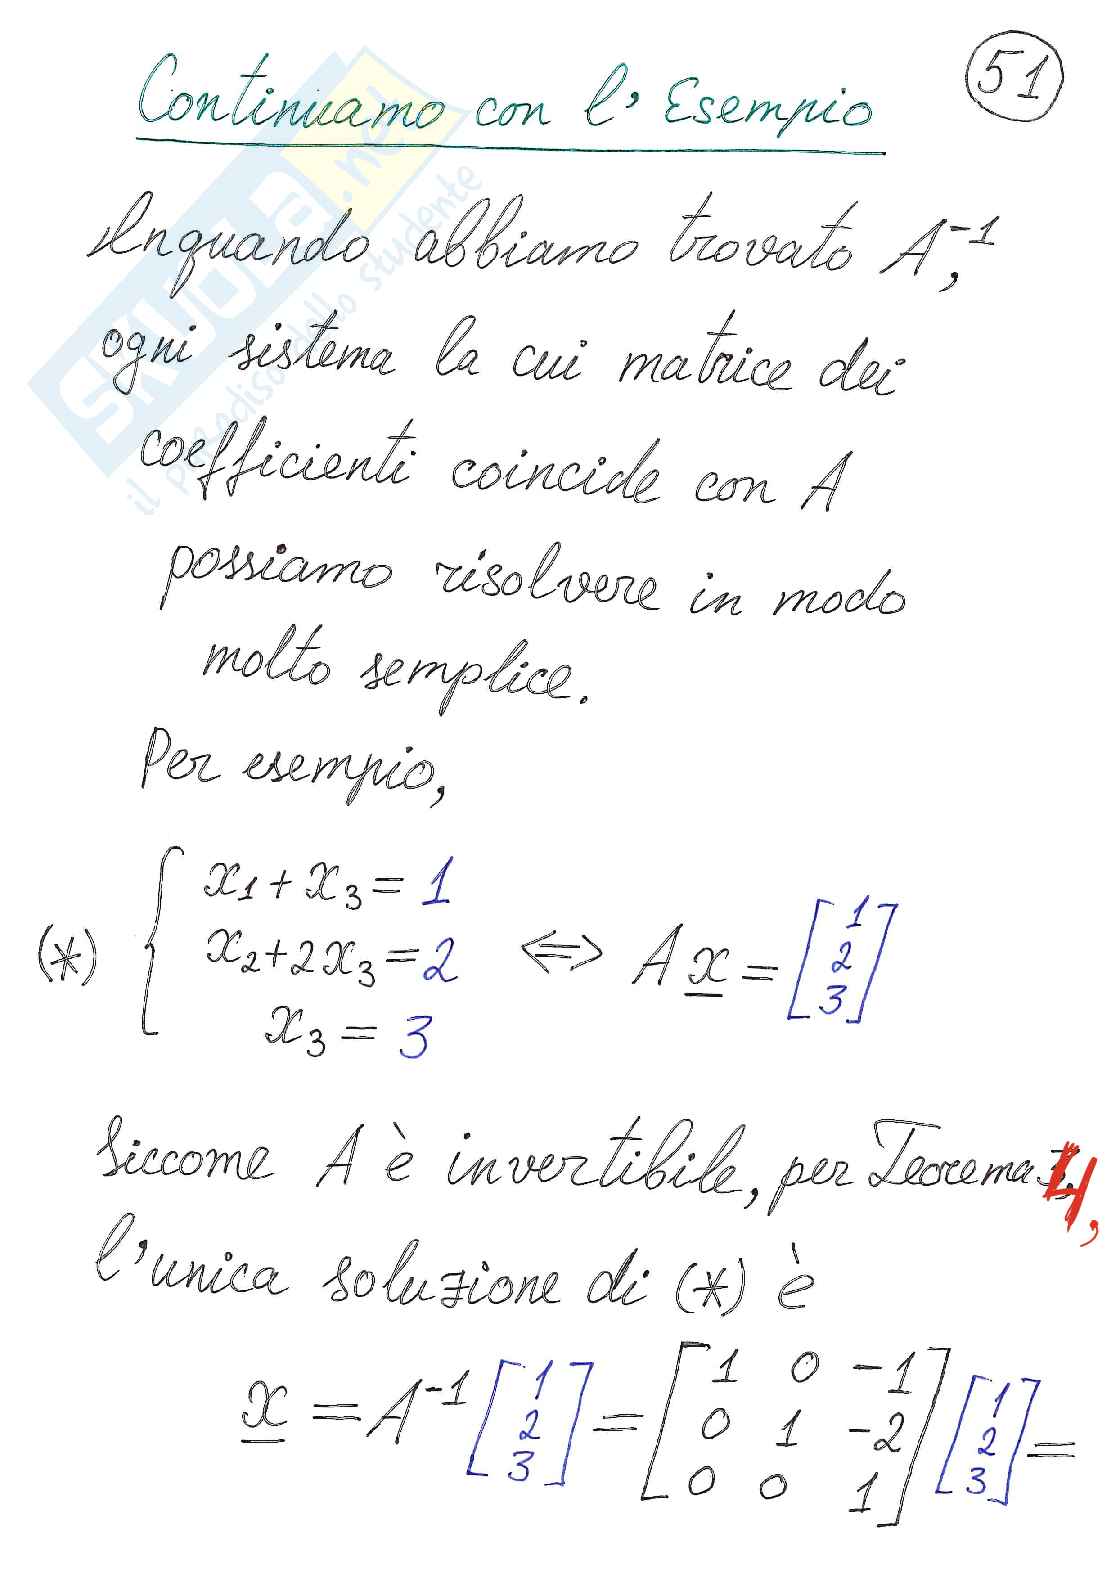 Continuamo con l'Esempio
51
Inquando abbiamo trovato A⁻¹,
ogni sistema la cui matrice dei
coefficienti coincide con A
possiamo risolvere in modo
molto semplice.
Per esempio,
(*) { x₁ + x₃ = 1
x₂ + 2x₃ = 2 ⇔ A x = [1 2 3]
x₃ = 3
Siccome A è invertibile, per Teorema 4,
l'unica soluzione di (*) è
x = A⁻¹ [1 2 3] = [1 0 -1
0 1 -2
0 0 1] [1 2 3] =
SKUOLA.net
il paradiso dello studente